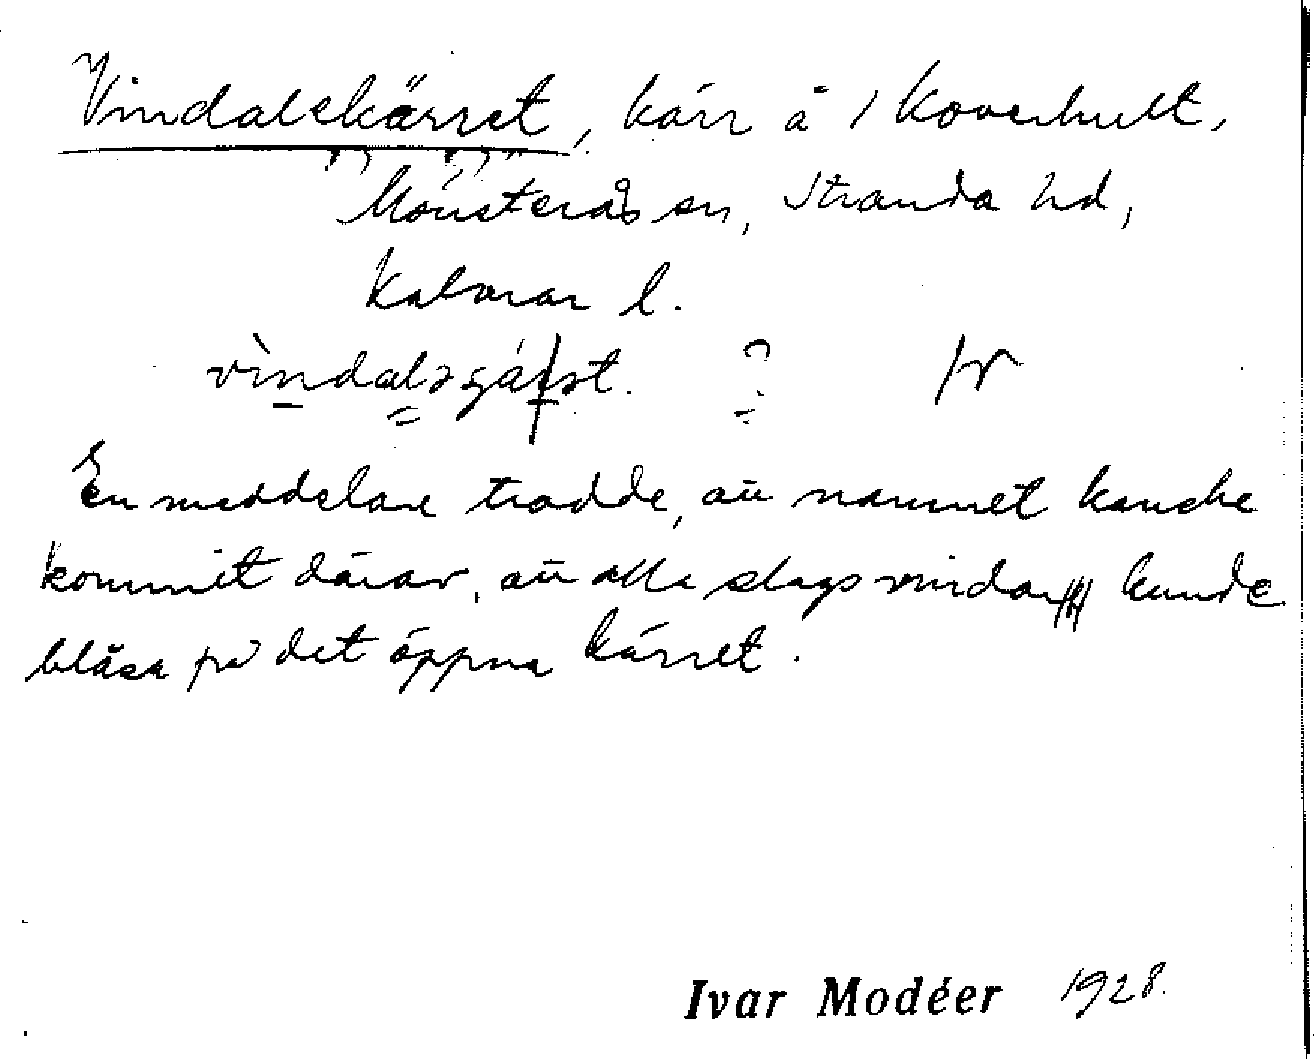 Vindalskärret, kärr å 1 Koverhult,
Mönsterås sn, Stranda hd,
Kalmar l.
?
En meddelare trodde, att namnet kanske
kommit därav, att alla slags vindar kunde
blåsa på det öppna kärret.
Ivar Modéer 1928.